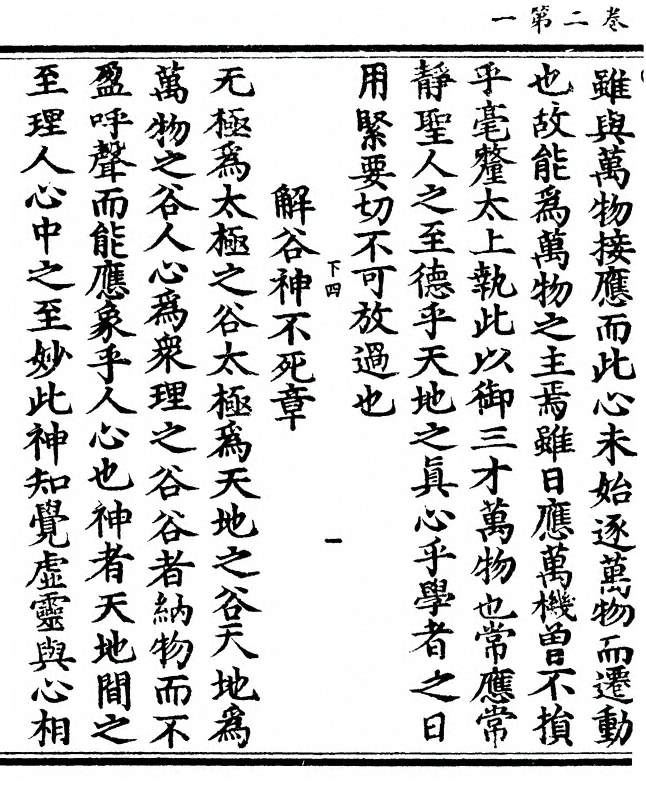 卷二第一
雖與萬物接應而此心未始逐萬物而遷動
也故能爲萬物之主焉雖日應萬機曾不損
乎毫釐太上執此以御三才萬物也常應常
靜聖人之至德乎天地之眞心乎學者之日
用緊要切不可放過也
下四
一
解谷神不死章
无極爲太極之谷太極爲天地之谷天地爲
萬物之谷人心爲衆理之谷谷者納物而不
盈呼聲而能應象乎人心也神者天地間之
至理人心中之至妙此神知覺虛靈與心相